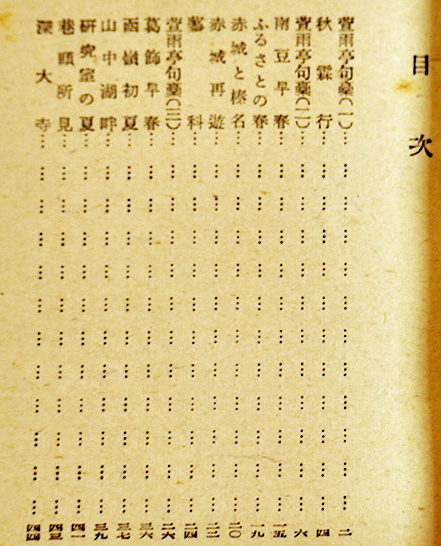 目次
萱雨亭句藁(一)…………………………………二
秋霖行…………………………………四
萱雨亭句藁(二)…………………………………六
南豆早春…………………………………一五
ふるさとの春…………………………………一九
赤城と榛名…………………………………二〇
赤城再遊…………………………………二三
蓼科…………………………………二四
萱雨亭句藁(三)…………………………………二六
葛飾早春…………………………………三六
函嶺初夏…………………………………三七
山中湖畔…………………………………三九
研究室の夏…………………………………四一
巷頭所見…………………………………四三
深大寺…………………………………四四